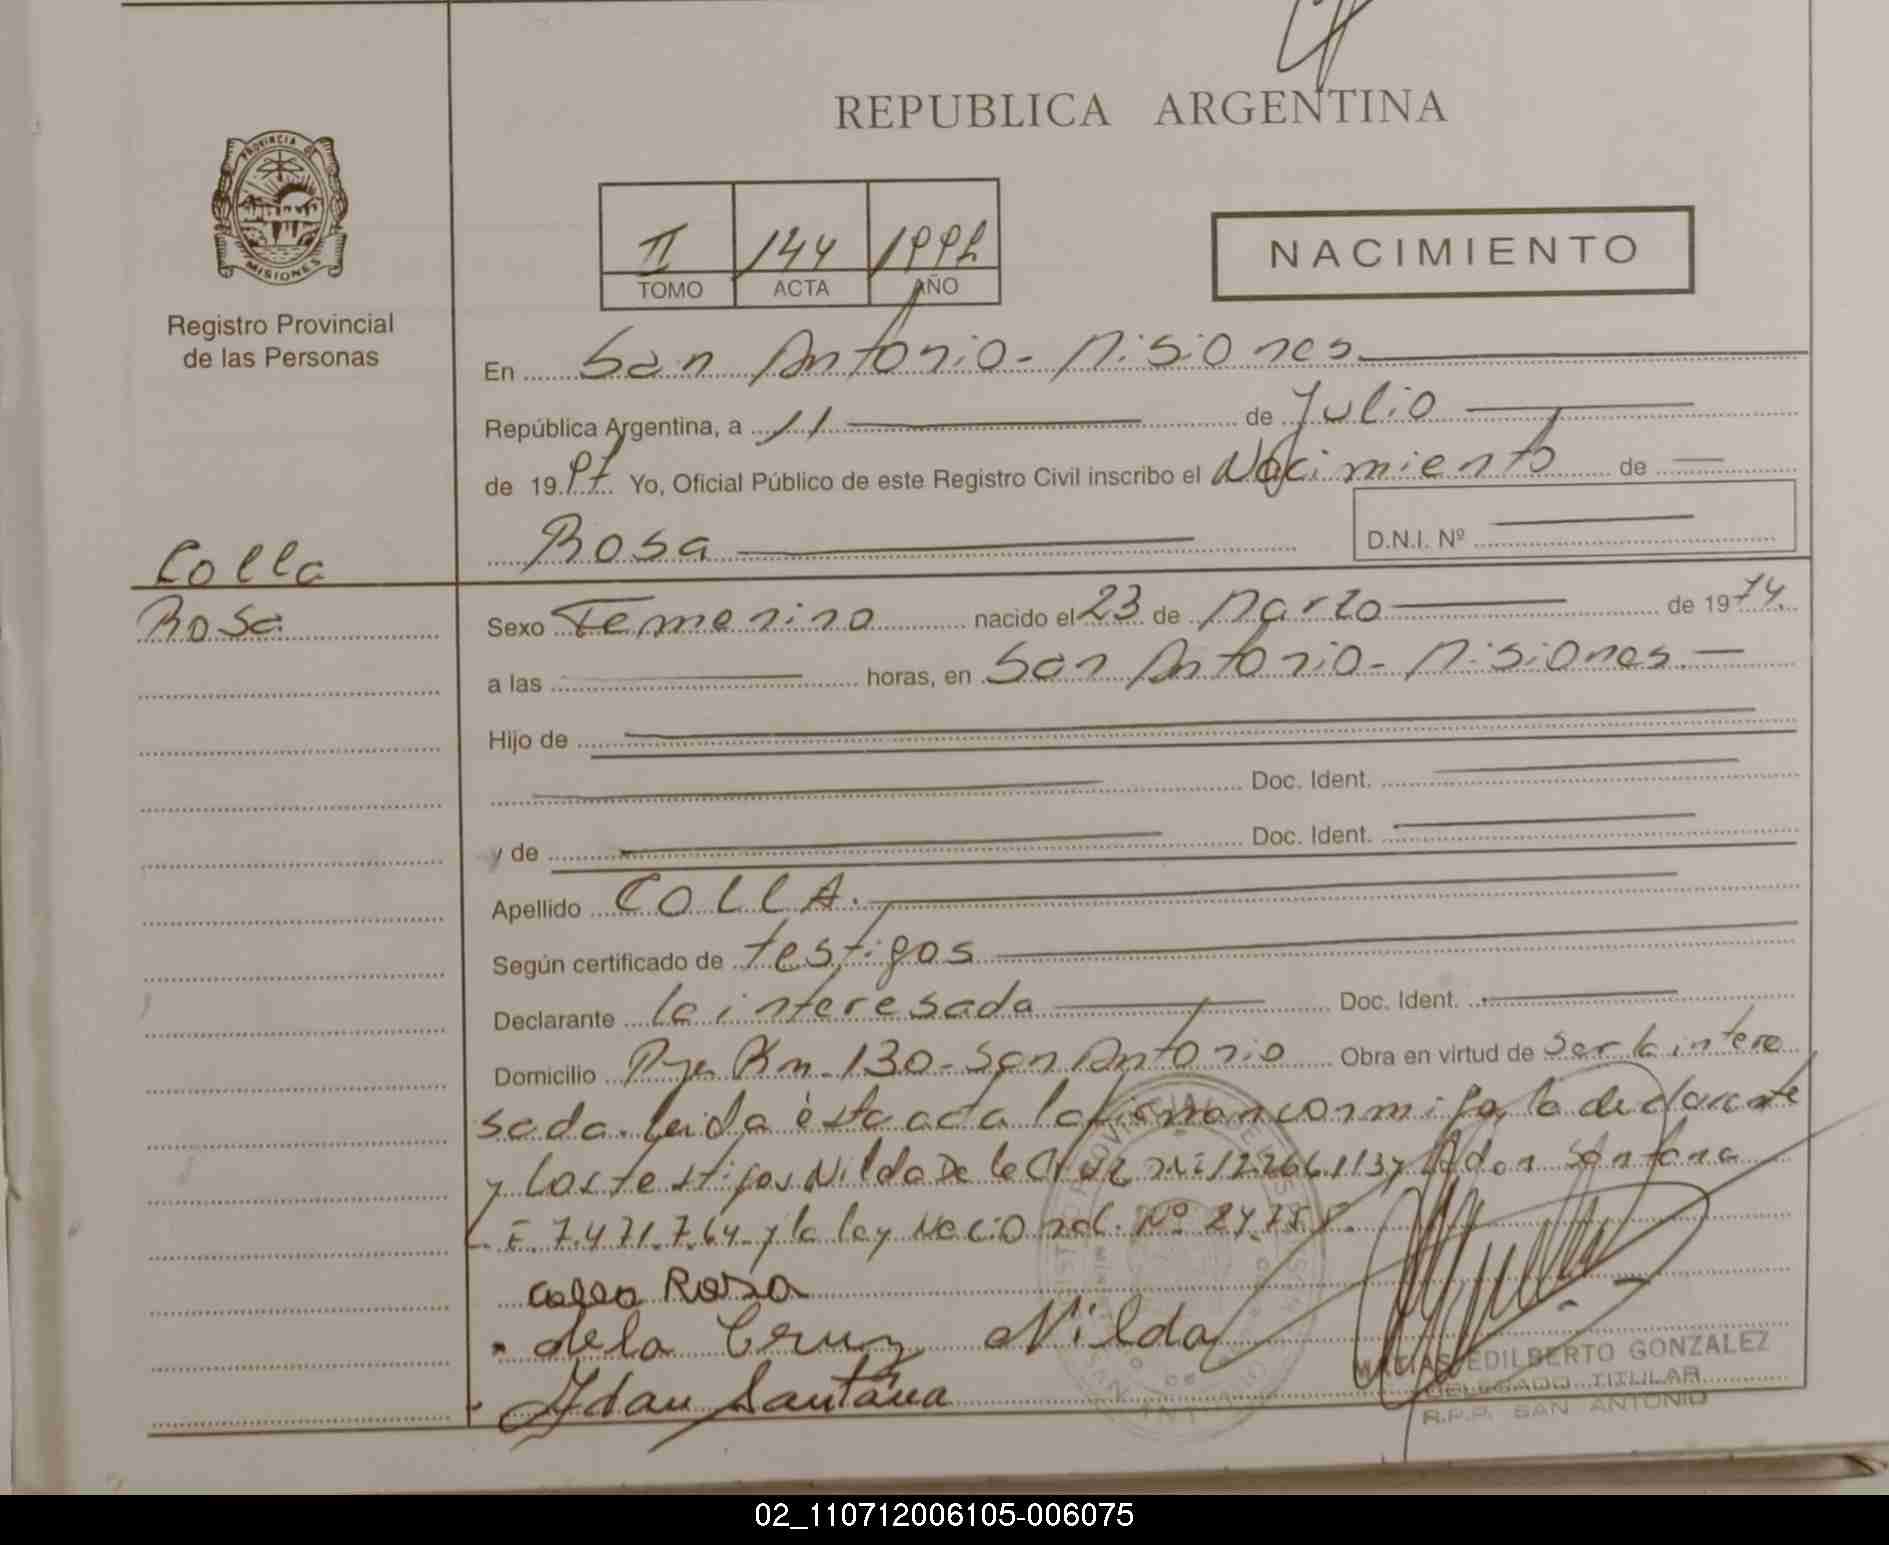 REPUBLICA ARGENTINA
PROVINCIA DE
MISIONES
Registro Provincial
de las Personas
II 144
TOMO ACTA AÑO
NACIMIENTO
En San Antonio - Misiones.
República Argentina, a 11 de Julio
de 19 Yo, Oficial Público de este Registro Civil inscribo el Nacimiento de
Rosa
D.N.I. Nº
Colla
Rosa
Sexo Femenino nacido el 23 de Marzo de 1974.
a las horas, en San Antonio - Misiones.
Hijo de
Doc. Ident.
y de Doc. Ident.
Apellido COLLA.
Según certificado de testigos
Declarante la interesada Doc. Ident.
Domicilio Pje Km. 130 - San Antonio Obra en virtud de ser la intere
sada. Leida ésta acta la firman conmigo, la declarante
y los testigos Nilda De la Cruz y Adan Santana
L.E 7.471.764 y la ley Nacional. Nº
Colla Rosa
de la Cruz Nilda
Adan Santana
MATIAS EDILBERTO GONZALEZ
DELEGADO TITULAR
R.P.P. SAN ANTONIO
02_110712006105-006075